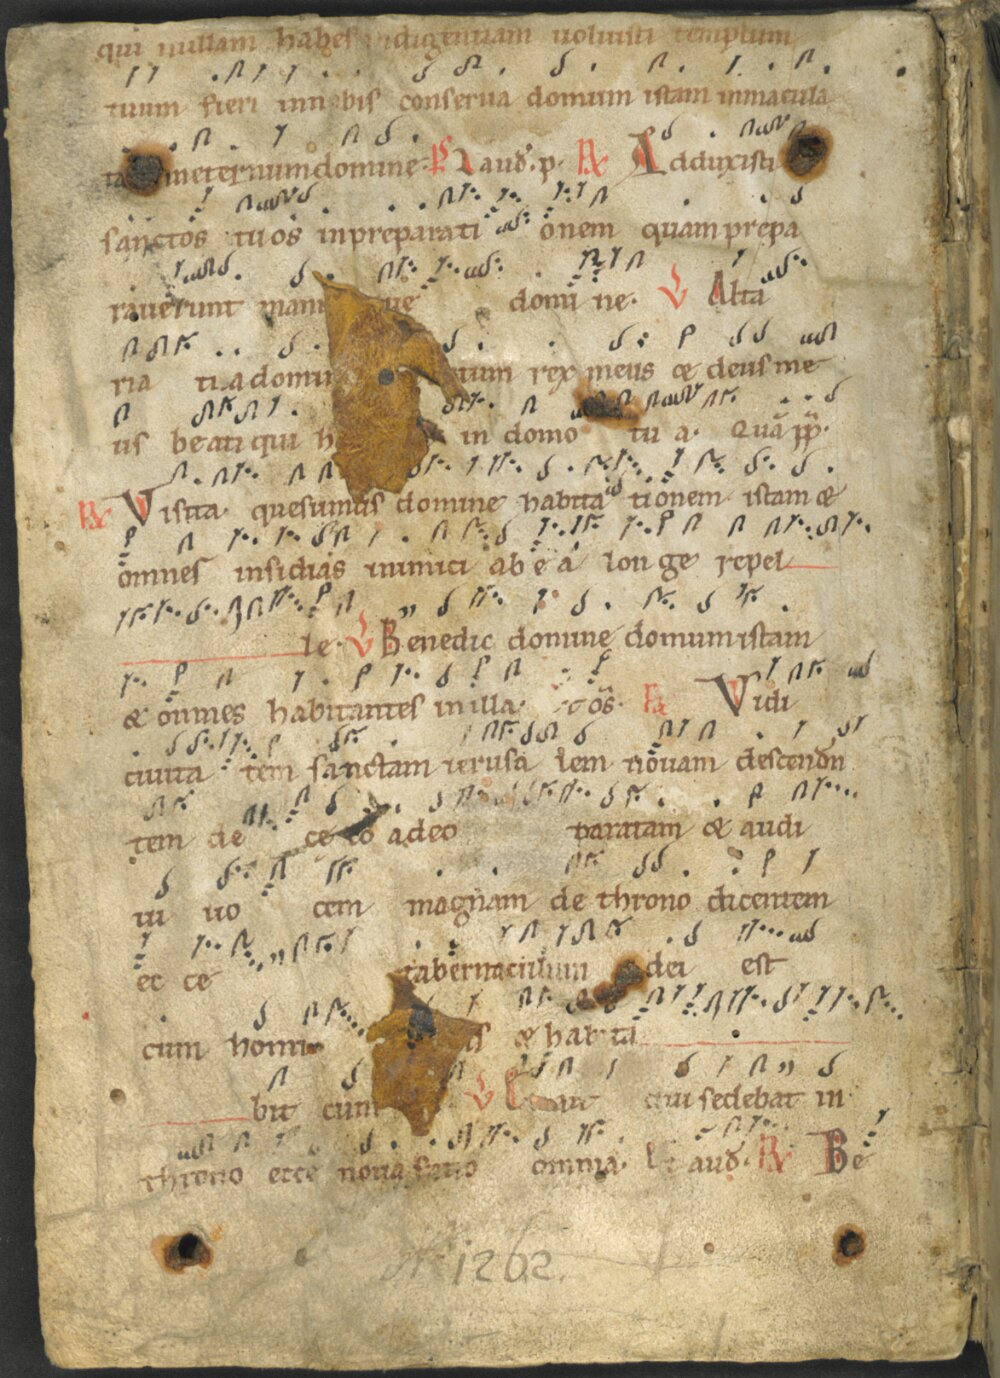 qui nullam habes indigentiam voluisti templum
tuum fieri in nobis conserva domum istam inmacula
in eternum domine. Ps Laud. p. R Adduxisti
sanctos tuos in preparati onem quam prepa
raverunt man domi ne. V Alta
ria tua domi rex meus & deus me
us beati qui in domo tu a. Quā pp̄.
R Visita quesumus domine habita tionem istam &
omnes insidias inimici ab e a longe repel
le. V Benedic domine domum istam
& omnes habitantes in illa. R Vidi
civita tem sanctam ierusa lem novam descenden
tem de ce lo a deo paratam & audi
vi vo cem magnam de throno dicentem
ec ce tabernaculum dei est
cum homi & habita
bit cum V qui sedebat in
throno ecce nova omnia. R Be
1262.